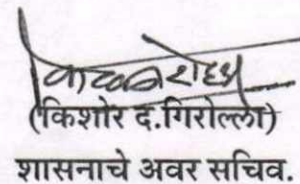 (किशोर द.गिरोल्ला)
शासनाचे अवर सचिव.